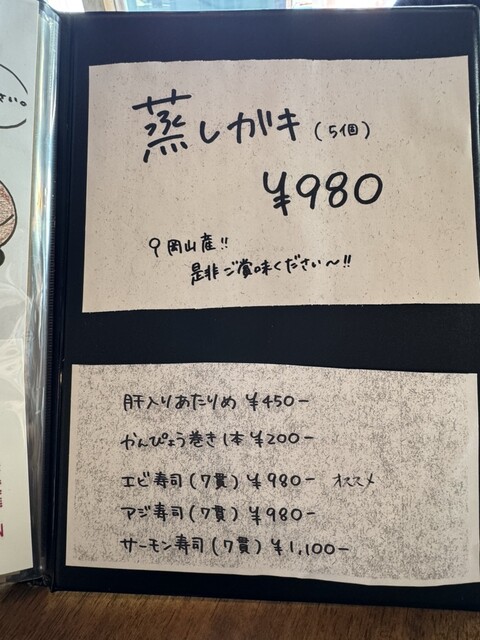 さい。
蒸しガキ(5個)
¥980
岡山産!!
是非ご賞味ください〜!!
肝入りあたりめ ¥450-
かんぴょう巻き1本 ¥200-
エビ寿司(7貫) ¥980- オススメ
アジ寿司(7貫) ¥980-
サーモン寿司(7貫) ¥1,100-